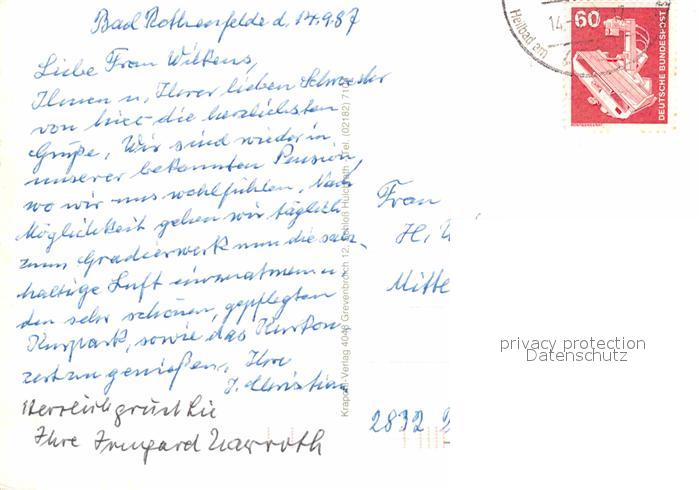 Bad Rothenfelde d. 14.9.87
Liebe Frau Wilkens,
Ihnen u. Ihrer lieben Schwester
von hier die herzlichsten
Grüße, Wir sind wieder in
unserer bekannten Pension,
wo wir uns wohlfühlen, Nach
Möglichkeit gehen wir täglich
zum Gradierwerk um die salz-
haltige Luft einzuatmen u
den sehr schönen, gepflegten
Kurpark, sowie das Kurkon
zert zu genießen, Ihre
I. Christian
Herzlich grüßt Sie
Ihre Irmgard Nawroth
Krapohl-Verlag 4048 Grevenbroich 12, Schloß Hülchrath, Tel. (02182) 71
Heilbad am
14.
60
DEUTSCHE BUNDESPOST
Frau
H.
Mitte
2832
privacy protection
Datenschutz